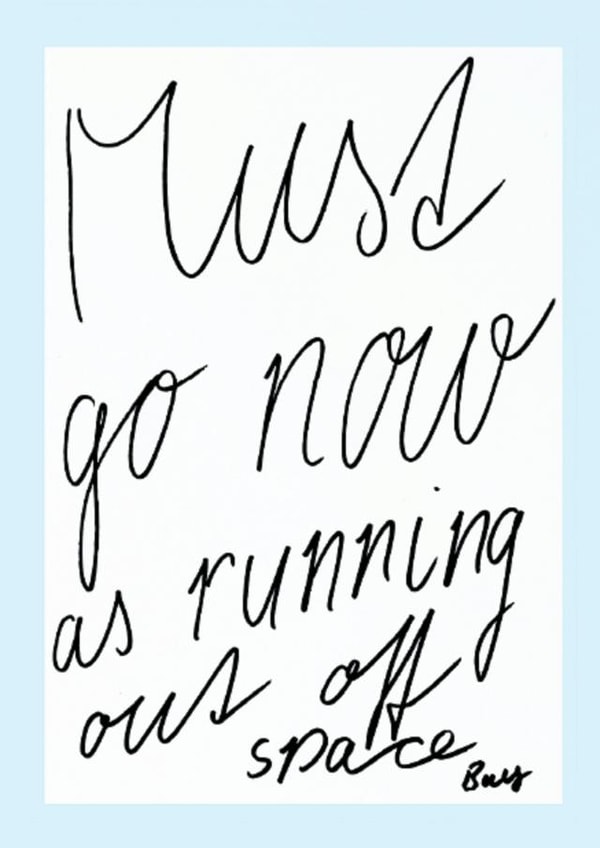 Must
go now
as running
out off
space